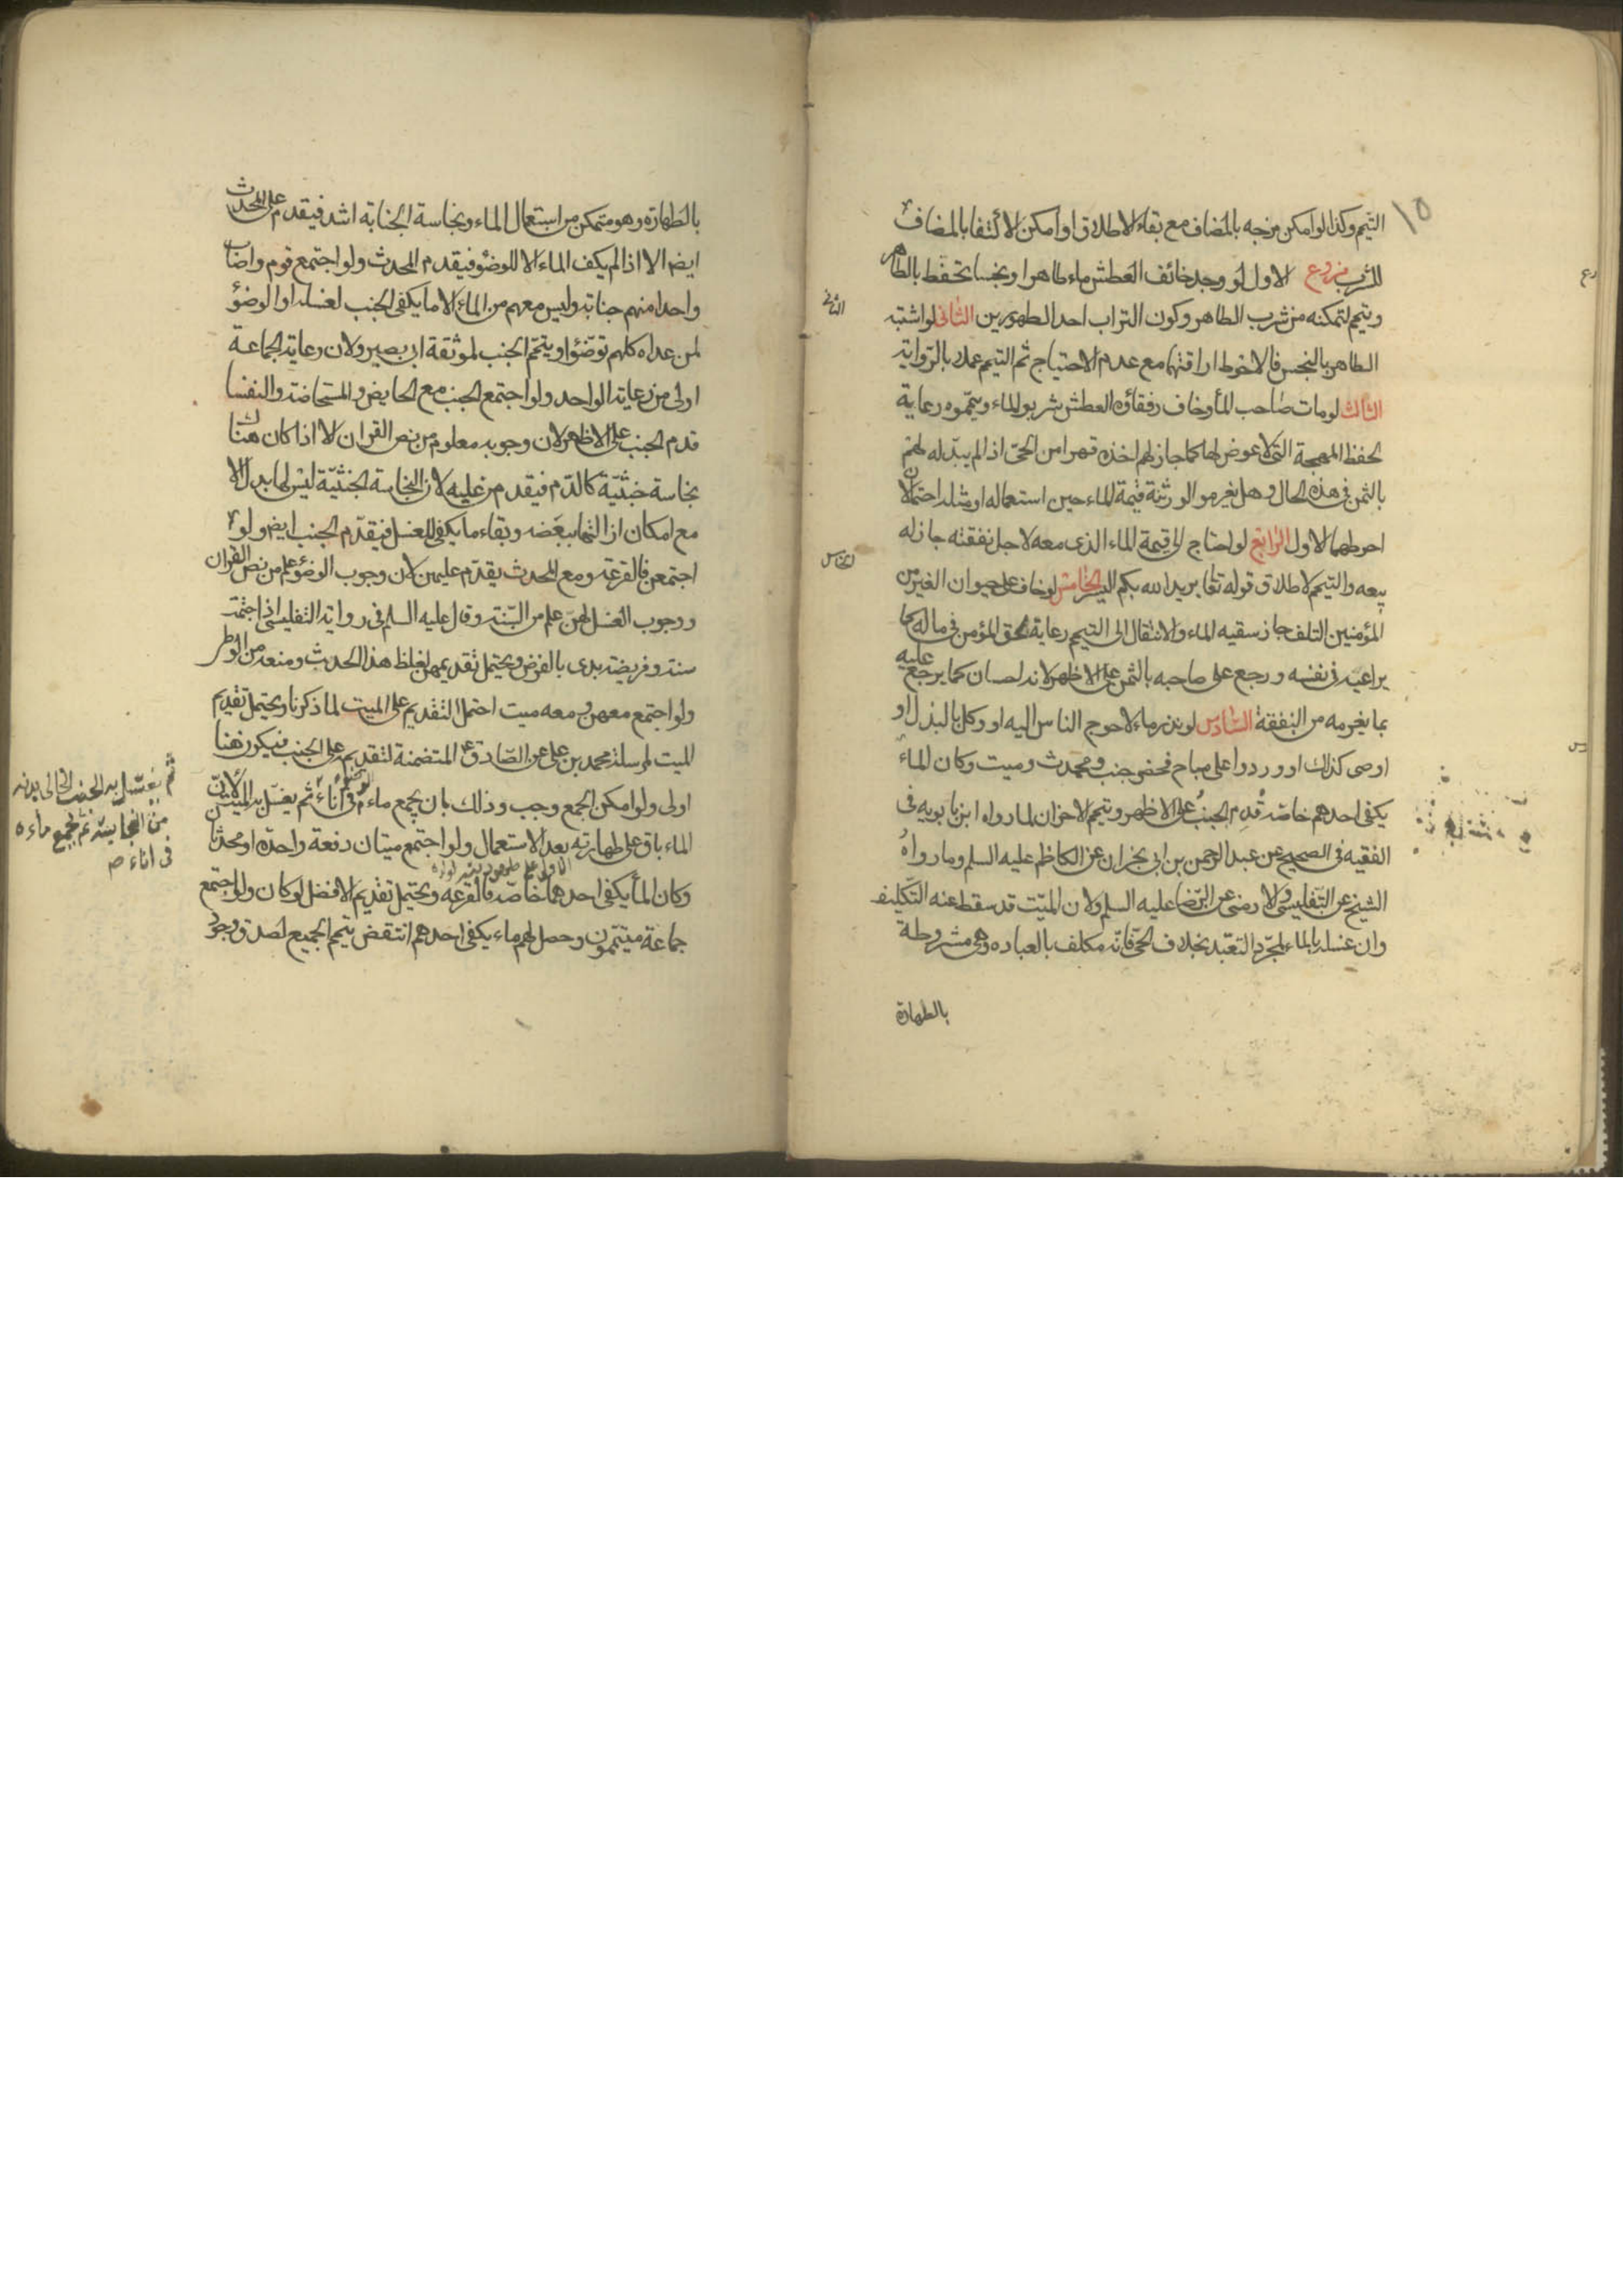 ١٥
التيمم وكذا لو امكن مزجه بالمضاف مع بقاء الاطلاق او امكن الاكتفا بالمضاف
للشرب فروع الاول لو وجد خائف العطش ماء طاهرا ونجسا تحفظ بالطاهر
وتيمم لتمكنه من شرب الطاهر وكون التراب احد الطهورين الثانى لو اشتبه
الطاهر بالنجس فالاحوط اراقتهما مع عدم الاحتياج ثم التيمم عملا بالرواية
الثالث لو مات صاحب الماء وخاف رفقاؤه العطش شربو الماء ويمّموه رعاية
لحفظ المهجة التى لا عوض لها كما جاز لهم اخذه قهرا من الحىّ اذا لم يبذله لهم
بالثمن فى هذه الحال وهل يغرمو الورثة قيمة الماء حين استعماله او مثله احتمالان
احوطهما الاول الرابع لو احتاج الى قيمة الماء الذى معه لاجل نفقته جاز له
بيعه والتيمم لاطلاق قوله تعا يريد الله بكم اليسر الخامس لو خاف على حيوان الغير من
المؤمنين التلف جاز سقيه الماء والانتقال الى التيمم رعاية لحق المؤمن فى ماله كما
يراعيه فى نفسه ورجع على صاحبه بالثمن على الاظهر لانه لصان كما يرجع عليه
بما يغرمه من النفقة السادس لو نذر ماء لاحوج الناس اليه او وكل بالبذل او
اوصى كذلك او وردوا على مباح فحضر جنب ومحدث وميت وكان الماء
يكفى احدهم خاصة قدم الجنب على الاظهر وتيمم الاخران لما رواه ابن بابويه فى
الفقيه فى الصحيح عن عبد الرحمن بن ابى نجران عن الكاظم عليه السلم وما رواه
الشيخ عن التفليسى والارمنى عن الرّضا عليه السلم ولان الميّت قد سقط عنه التّكليف
وان غسله بالماء لمجرّد التعبّد بخلاف الحىّ فانّه مكلف بالعباده وهى مشروطة
بالطهارة
الثانى
الخامس
بالطهارة وهو متمكن من استعمال الماء ونجاسة الجنابة اشد فيقدم على المحدث
ايضا الا اذا لم يكف الماء الا للوضوء فيقدم المحدث ولو اجتمع قوم واصاب
واحدا منهم جنابة وليس معهم من الماء الا ما يكفى الجنب لغسله او الوضؤ
لمن عداه كلهم توضّؤا ويتمّم الجنب لموثقة ابى بصير ولان رعاية الجماعة
اولى من رعاية الواحد ولو اجتمع الجنب مع الحايض والمستحاضة والنفسا
قدم الجنب على الاظهر لان وجوبه معلوم من نص القران الا اذا كان هناك
نجاسة خبثيّة كالدّم فيقدم من عليه لان النجاسة الخبثيّة ليس لها بدل الا
مع امكان ازالتها ببعضه وبقاء ما يكفى للغسل فيقدّم الجنب ايضا ولو
اجتمعن فالقرعة ومع المحدث يقدّم عليهن لان وجوب الوضؤ علم من نص القران
ووجوب الغسل لهنّ علم من السّنة وقال عليه السلم فى رواية التفليسى اذا اجتمعت
سنة وفريضة بدى بالفرض ويحتمل تقديمهن لغلظ هذا الحدث ومنعه من الوطر
ولو اجتمع معهن ومعه ميت احتمل التقديم على الميت لما ذكرنا ويحتمل تقديم
الميت لمرسلة محمد بن على عن الصّادق ع المتضمنة لتقديمه على الجنب فيكون هنا
اولى ولو امكن الجمع وجب وذلك بان يجمع ماء الوضوء فى اناء ثم يغسّل به الميت لان
الماء باق على طهارته بعد الاستعمال ولو اجتمع ميتان دفعة واحدة او محدثان
وكان الماء يكفى احدهما خاصّة فالقرعه ويحتمل تقديم الافضل لو كان ولو اجتمع
جماعة متيمّمون وحصل لهم ماء يكفى احدهم انتقض تيمم الجميع لصدق وجود
ثم يغتسل به الجنب الخالى بدنه
من النجاسة ثم يجمع ماءه
فى اناء ص